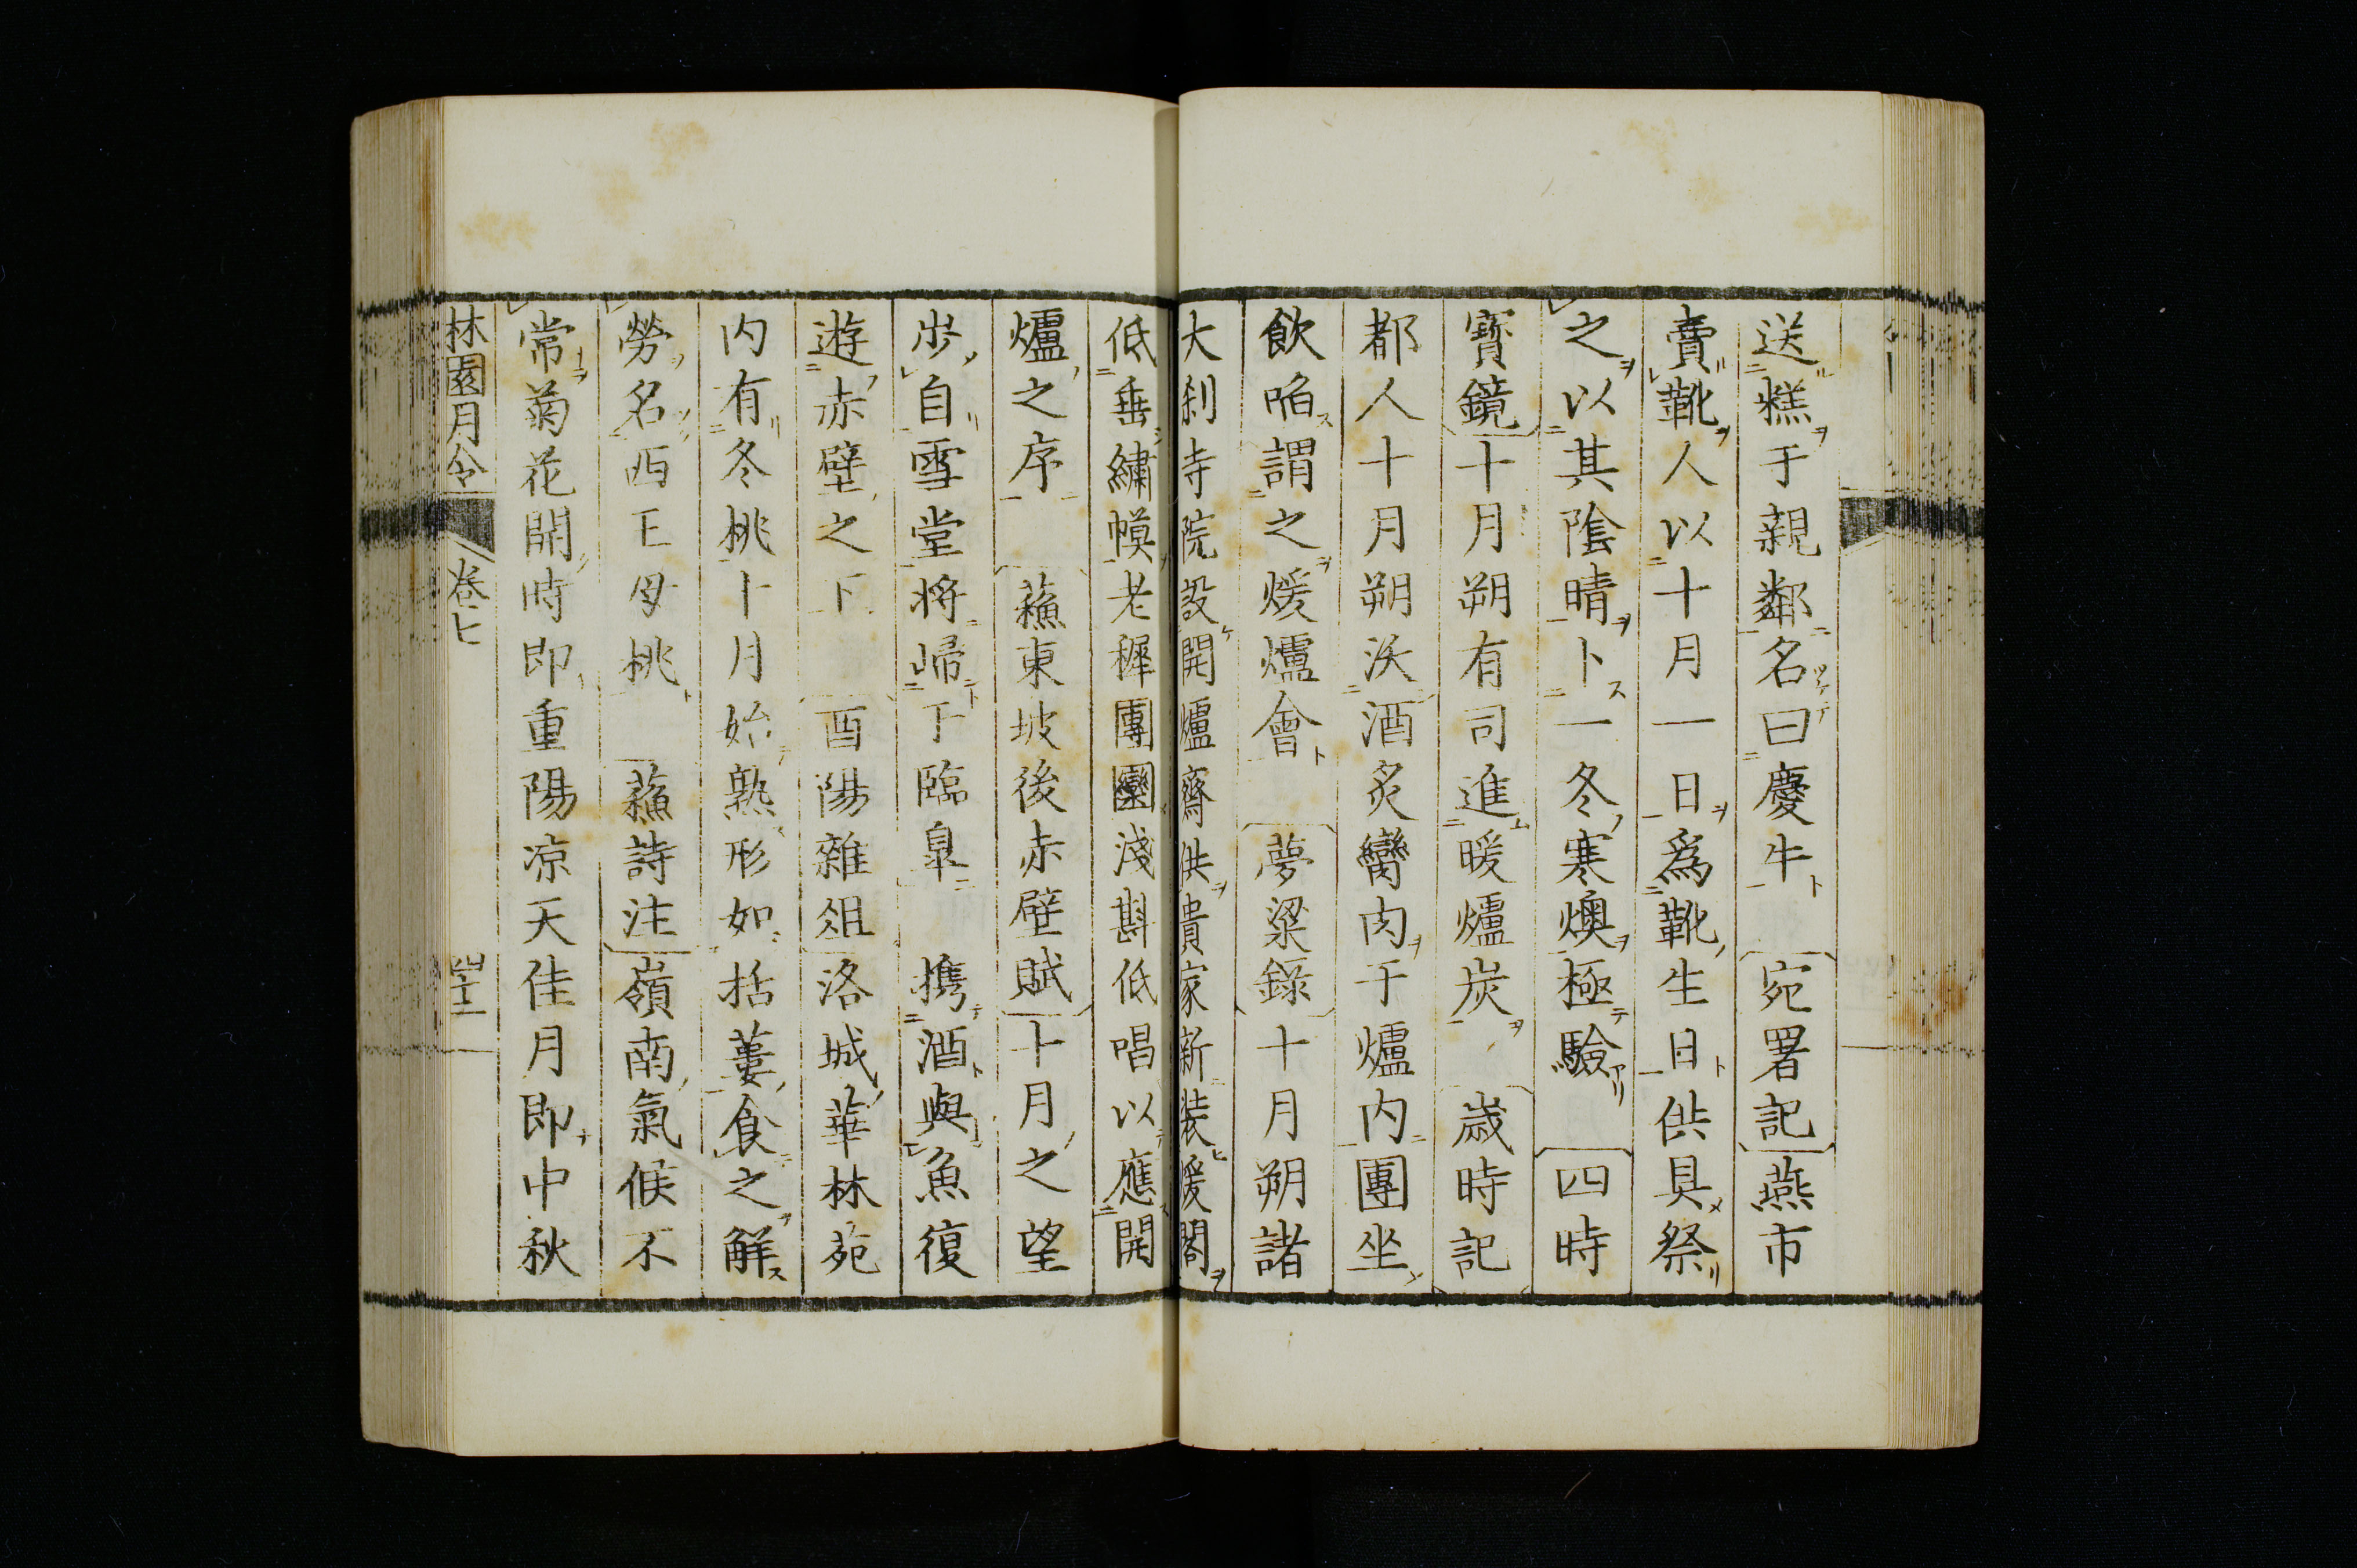 送糕于親鄰名曰慶牛 宛署記 燕市
賣靴人以十月一日爲靴生日供具祭
之以其陰晴卜一冬寒燠極驗 四時
寶鏡 十月朔有司進暖爐炭 歲時記
都人十月朔沃酒炙臠肉于爐内團坐
飲啗謂之煖爐會 夢粱錄 十月朔諸
大刹寺院設開爐齋供貴家新裝煖閣
低垂繡幙老穉團圞淺斟低唱以應開
爐之序 蘓東坡後赤壁賦 十月之望
步自雪堂將歸于臨皐 携酒與魚復
遊赤壁之下 酉陽雜俎 洛城華林苑
内有冬桃十月始熟形如括蔞食之解
勞名西王母桃 蘓詩注 嶺南氣候不
常菊花開時即重陽凉天佳月即中秋
林園月令 卷七